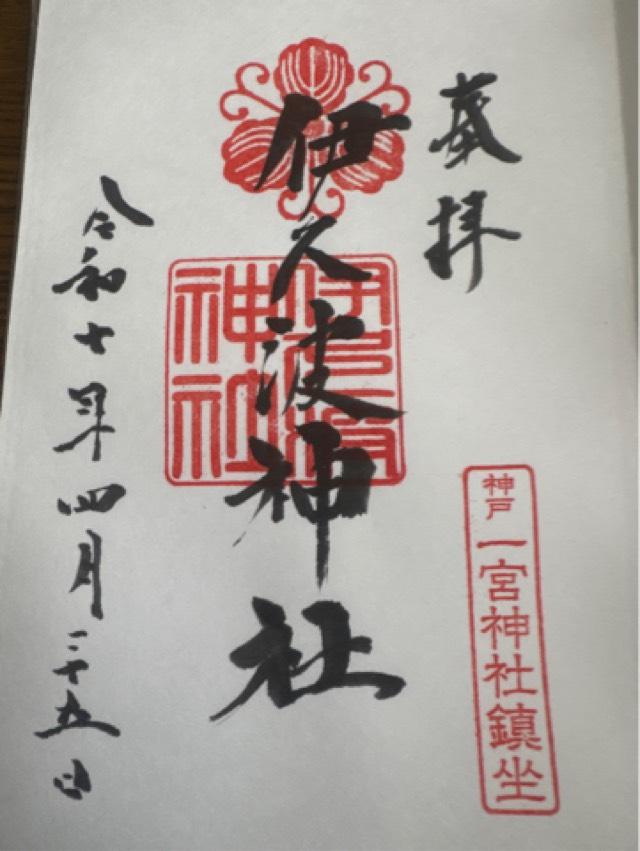 奉拝
伊久波神社
伊久波神社
神戸 一宮神社鎮坐
令和七年四月二十五日